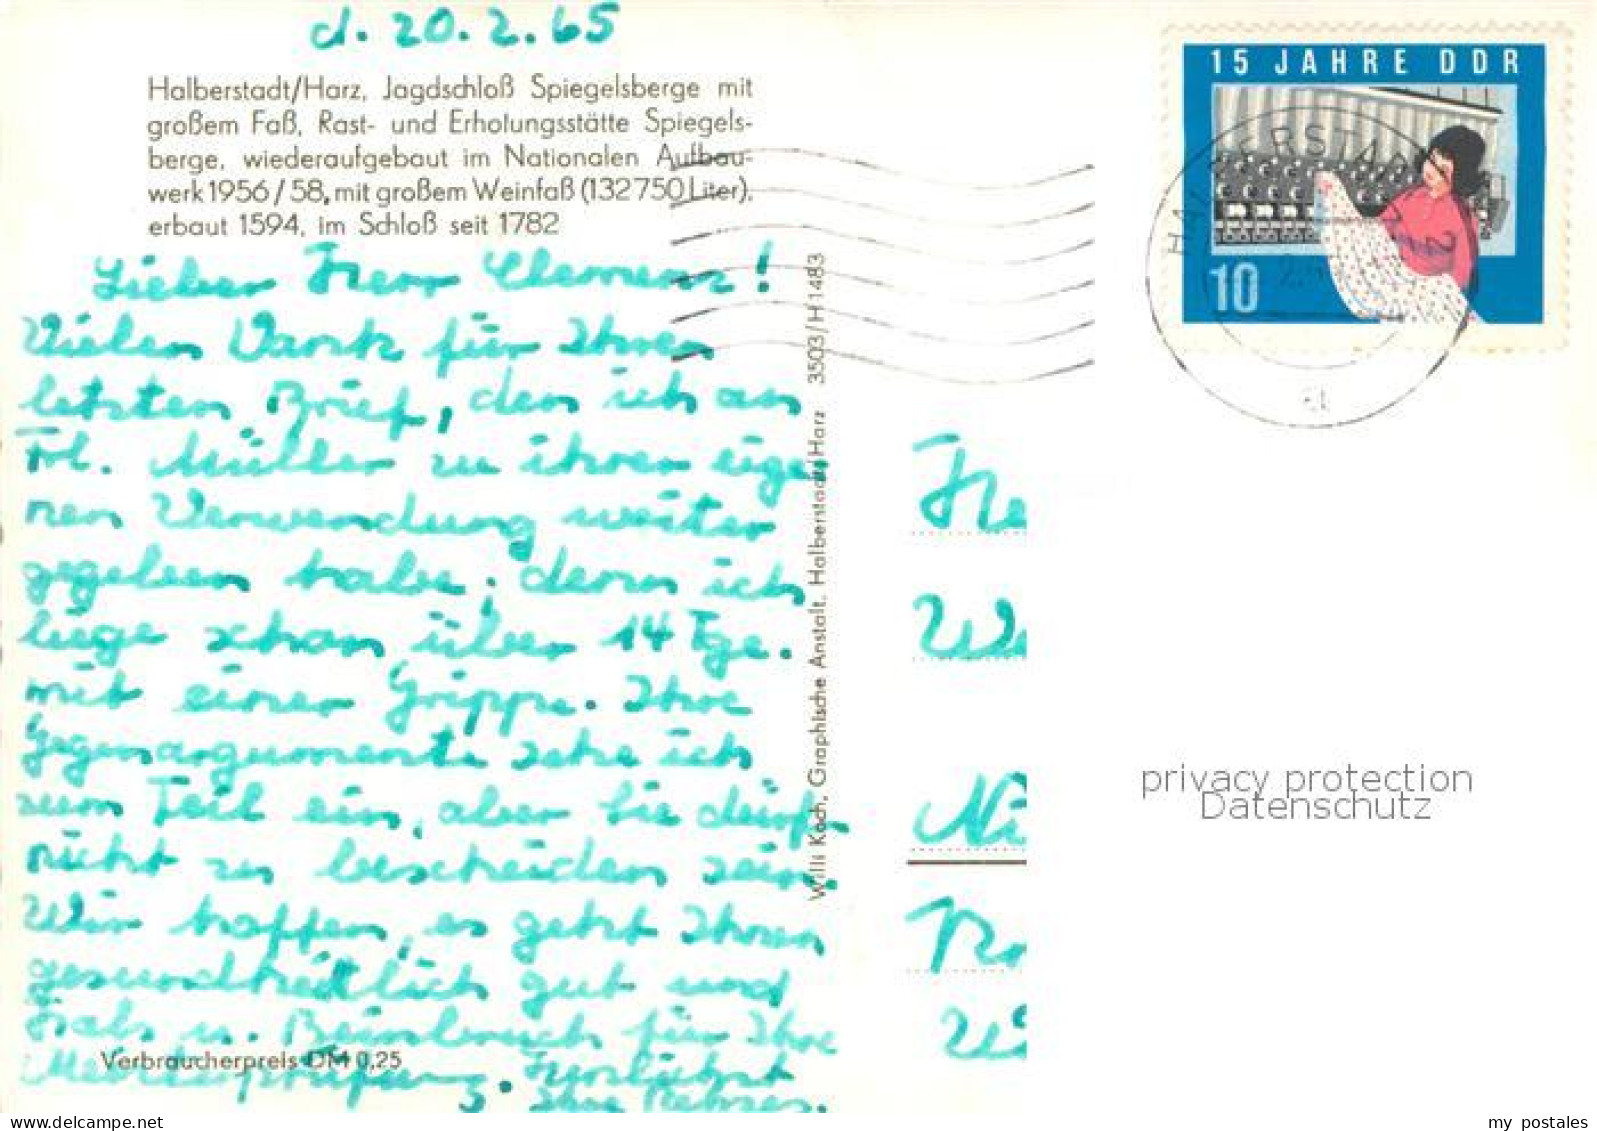 d. 20.2.65
Halberstadt/Harz, Jagdschloß Spiegelsberge mit
großem Faß, Rast- und Erholungsstätte Spiegels-
berge, wiederaufgebaut im Nationalen Aufbau-
werk 1956/58, mit großem Weinfaß (132750 Liter),
erbaut 1594, im Schloß seit 1782
Lieber Herr Clemens!
Vielen Dank für Ihren
letzten Brief, den ich an
Frl. Müller zu ihrer eige
nen Verwendung weiter
gegeben habe, denn ich
liege schon über 14 Tge.
mit einer Grippe. Ihre
Gegenargumente sehe ich
zum Teil ein, aber Sie dürfen
nicht zu bescheiden sein.
Wir hoffen, es geht Ihnen
gesundheitlich gut und
Hals u. Beinbruch für Ihre
Meisterprüfung. Herzlichst
Ihre
Verbraucherpreis DM 0,25
Willi Koch, Graphische Anstalt, Halberstadt/Harz 3503/H 1483
15 JAHRE DDR
10
HALBERSTADT
2
a
He
We
Ni
privacy protection
Datenschutz
my postales